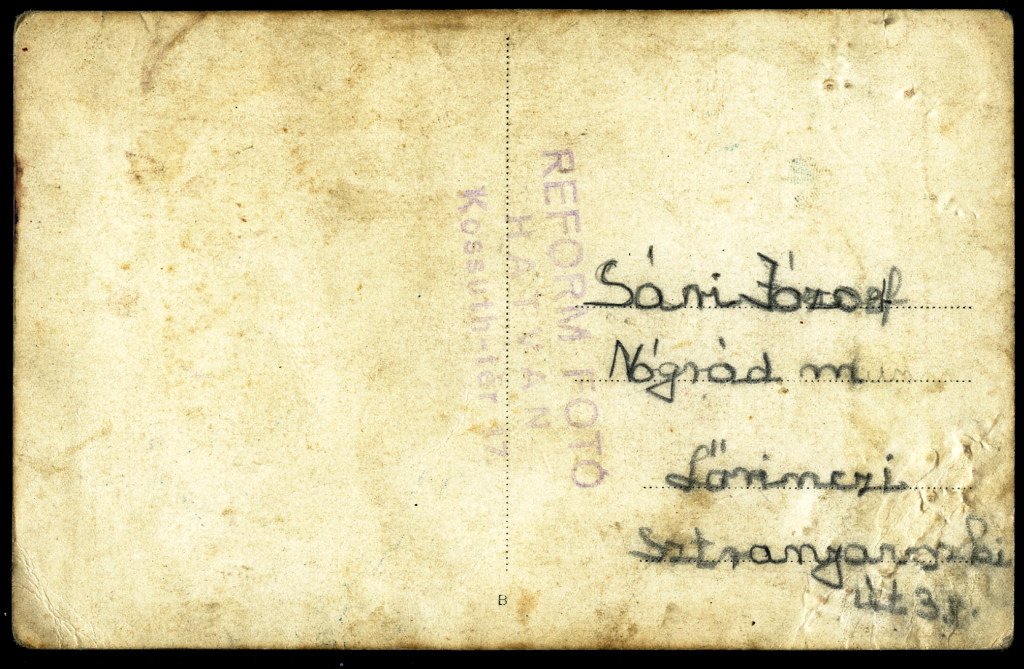 REFORM FOTÓ
HATVAN
Kossuth-tér 17
Sári József
Nógrád m
Lőrinczi
út 3
B